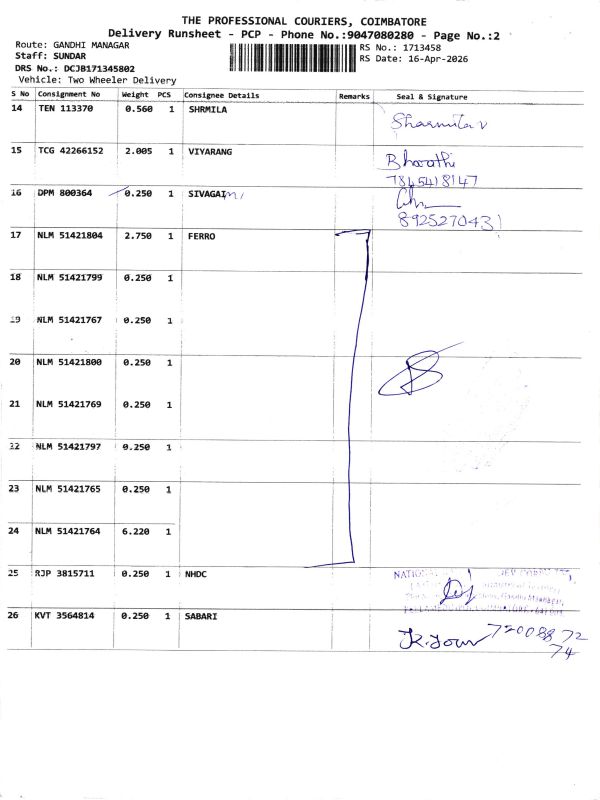 THE PROFESSIONAL COURIERS, COIMBATORE
Delivery Runsheet - PCP - Phone No.:9047080280 - Page No.:2
Route: GANDHI MANAGAR
Staff: SUNDAR
DRS No.: DCJB171345802
Vehicle: Two Wheeler Delivery
RS No.: 1713458
RS Date: 16-Apr-2026
S No Consignment No Weight PCS Consignee Details Remarks Seal & Signature
14 TEN 113370 0.560 1 SHRMILA Sharmila v
15 TCG 42266152 2.005 1 VIYARANG Bharathi
7845418147
16 DPM 800364 0.250 1 SIVAGAmi
8925270431
17 NLM 51421804 2.750 1 FERRO
18 NLM 51421799 0.250 1
19 NLM 51421767 0.250 1
20 NLM 51421800 0.250 1
21 NLM 51421769 0.250 1
22 NLM 51421797 0.250 1
23 NLM 51421765 0.250 1
24 NLM 51421764 6.220 1
25 RJP 3815711 0.250 1 NHDC
26 KVT 3564814 0.250 1 SABARI
72008872
74